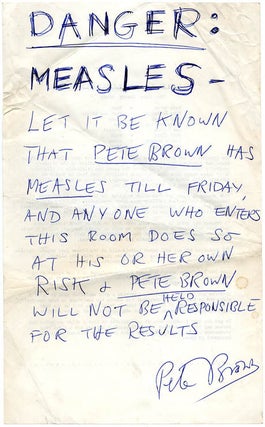 DANGER:
MEASLES -
LET IT BE KNOWN
THAT PETE BROWN HAS
MEASLES TILL FRIDAY,
AND ANYONE WHO ENTERS
THIS ROOM DOES SO
AT HIS OR HER OWN
RISK & PETE BROWN
WILL NOT BE HELD RESPONSIBLE
FOR THE RESULTS
Pete Brown